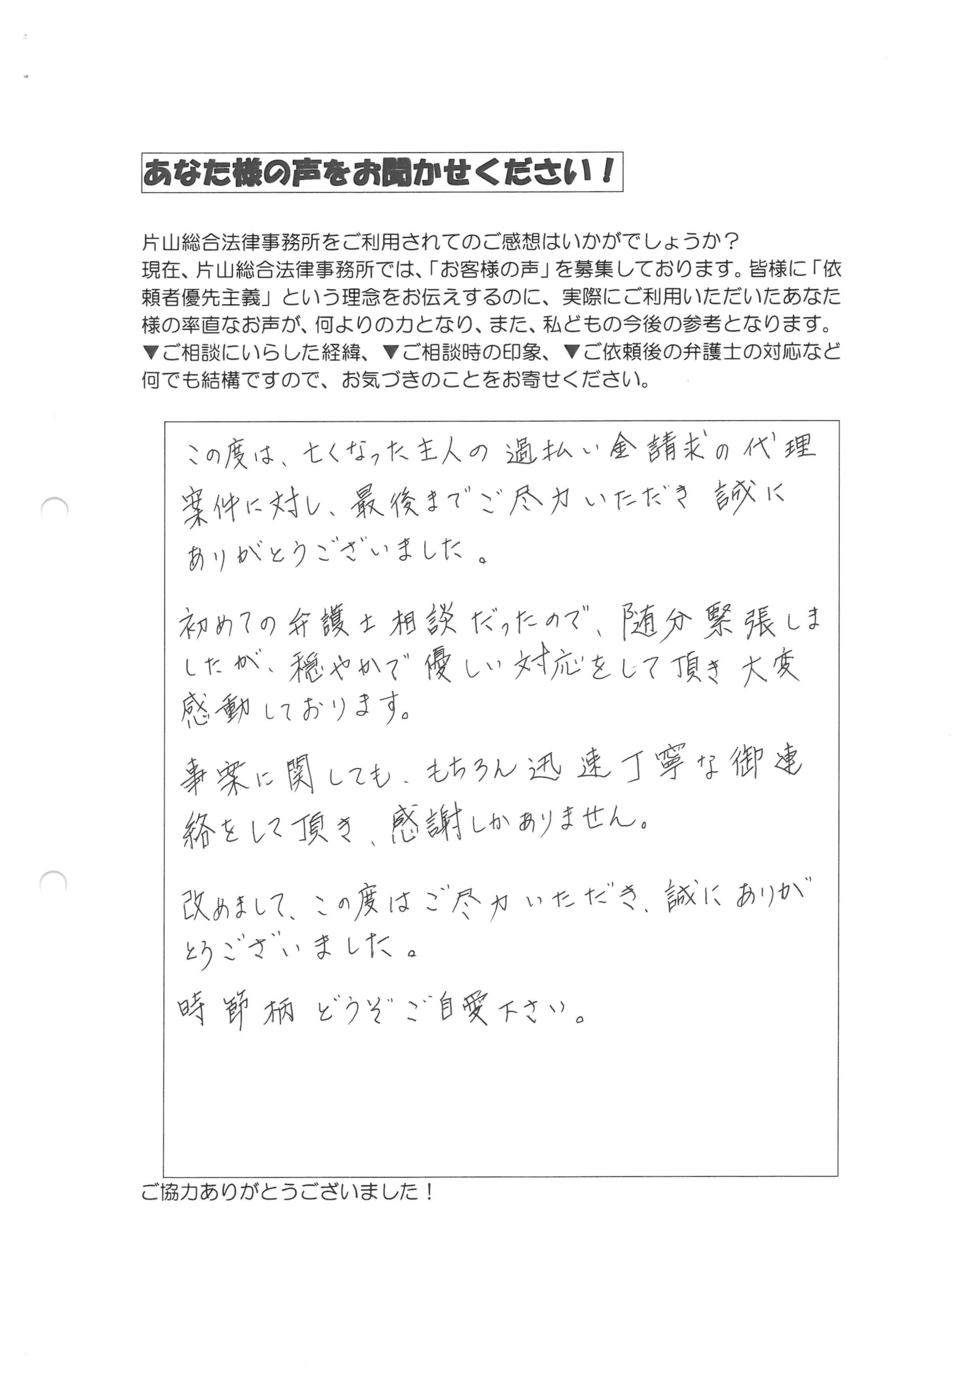 あなた様の声をお聞かせください！
片山総合法律事務所をご利用されてのご感想はいかがでしょうか？
現在、片山総合法律事務所では、「お客様の声」を募集しております。皆様に「依
頼者優先主義」という理念をお伝えするのに、実際にご利用いただいたあなた
様の率直なお声が、何よりの力となり、また、私どもの今後の参考となります。
▼ご相談にいらした経緯、▼ご相談時の印象、▼ご依頼後の弁護士の対応など
何でも結構ですので、お気づきのことをお寄せください。
この度は、亡くなった主人の過払い金請求の代理
案件に対し、最後までご尽力いただき誠に
ありがとうございました。
初めての弁護士相談だったので、随分緊張しま
したが、穏やかで優しい対応をして頂き大変
感動しております。
事案に関しても、もちろん迅速丁寧な御連
絡をして頂き、感謝しかありません。
改めまして、この度はご尽力いただき、誠にありが
とうございました。
時節柄どうぞご自愛下さい。
ご協力ありがとうございました！